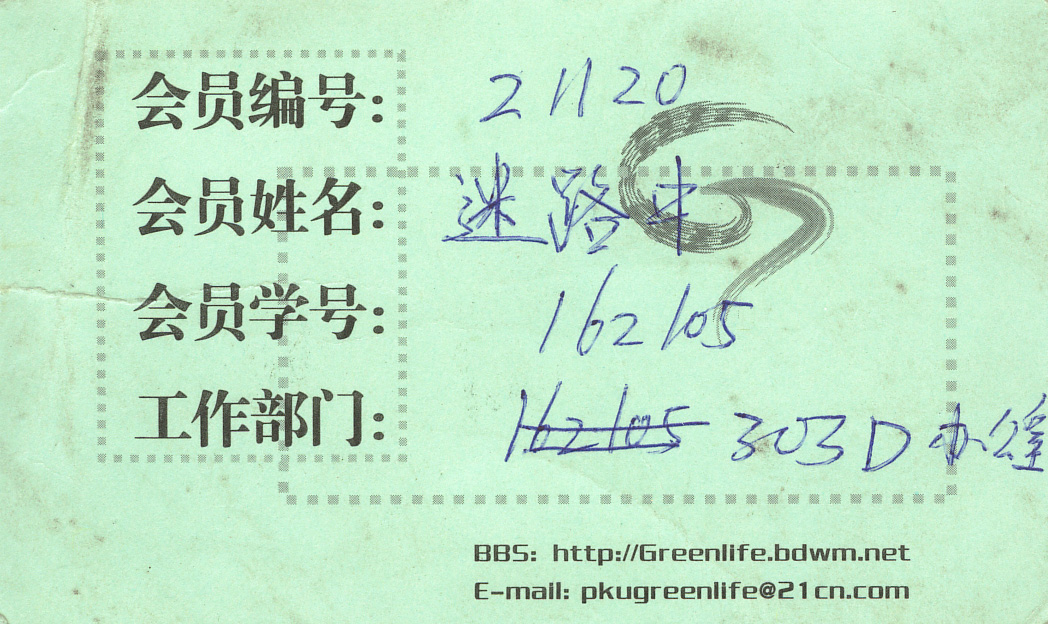 会员编号: 21120
会员姓名: 迷路中
会员学号: 162105
工作部门: 162105 303D办
BBS: http://Greenlife.bdwm.net
E-mail: pkugreenlife@21cn.com